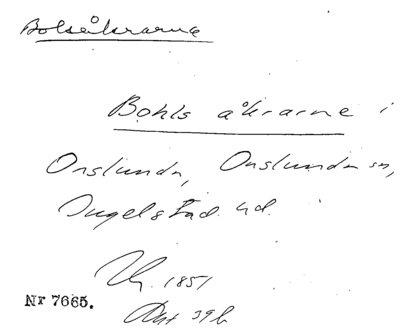 Bolsåkrarne
Bohls åkrarne i
Onslunda, Onslunda sn,
Ingelstad hd.
1851
Nr 7665.
Akt 39b